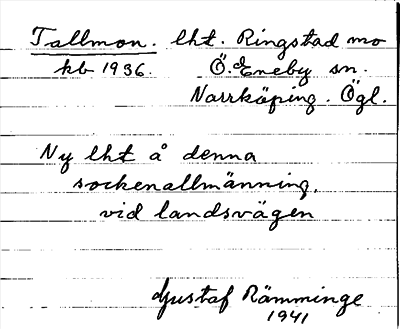 Tallmon. lht. Ringstad mo
kb 1936. Ö. Eneby sn.
Norrköping. Ögl.
Ny lht å denna
sockenallmänning,
vid landsvägen
Gustaf Rämminge
1941